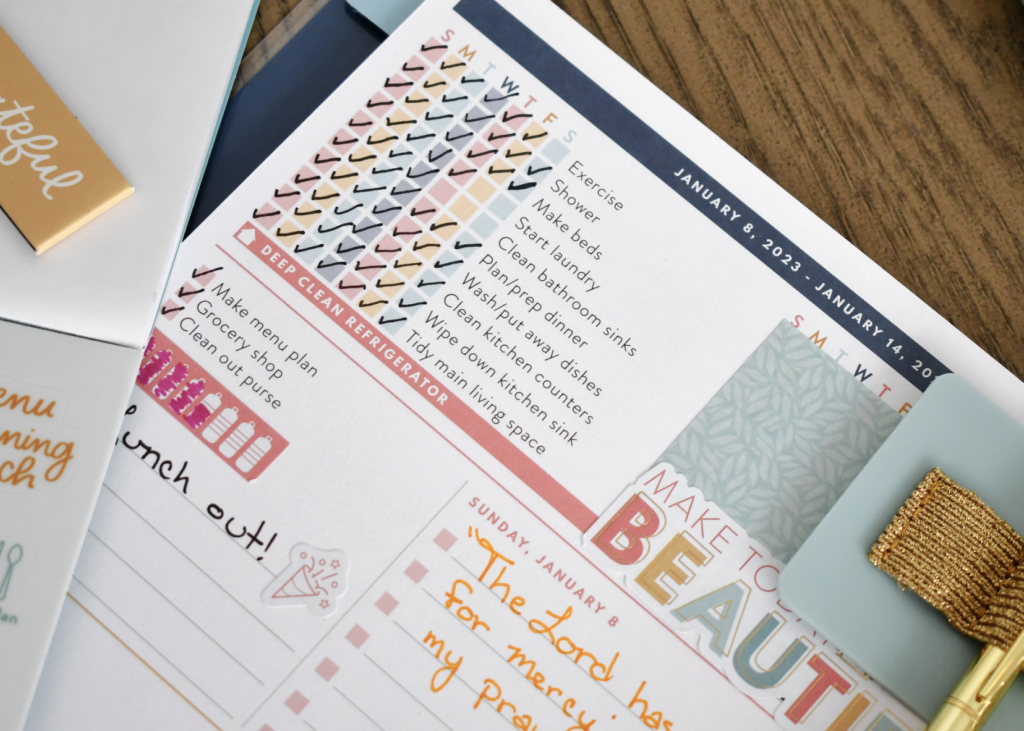 JANUARY 8, 2023 - JANUARY 14, 20
S M T W T F S
Exercise
Shower
Make beds
Start laundry
Clean bathroom sinks
Plan/prep dinner
Wash/put away dishes
Clean kitchen counters
Wipe down kitchen sink
Tidy main living space
DEEP CLEAN REFRIGERATOR
Make menu plan
Grocery shop
Clean out purse
lunch out!
S M T W T F
MAKE TO
BEAUTI
SUNDAY, JANUARY 8
"The Lord has
for mercy;
my pray
ateful
enu
ning
ch